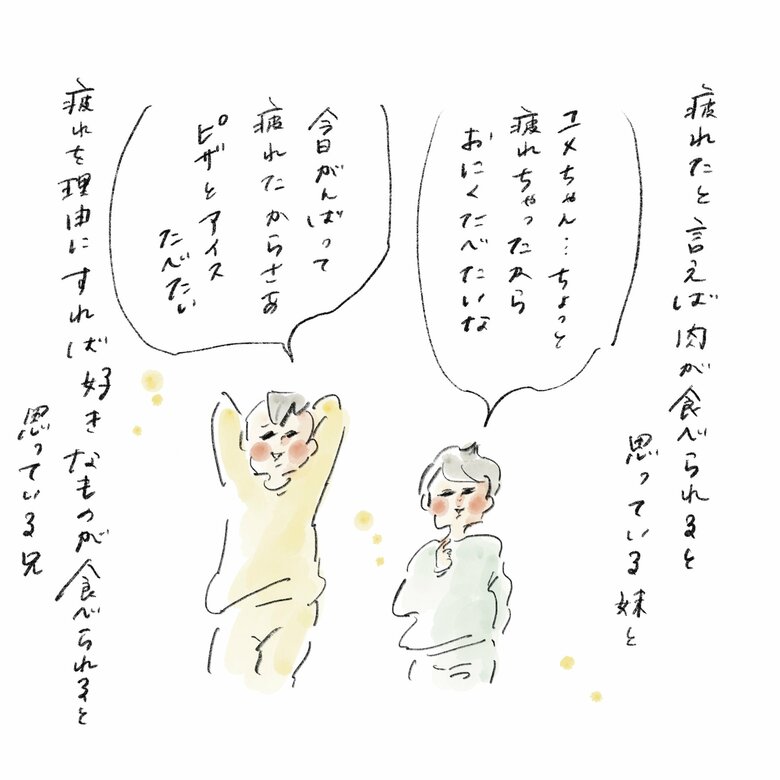 疲れたと言えば肉が食べられると
思っている妹と
ユメちゃん…ちょっと
疲れちゃったから
おにくたべたいな
今日がんばって
疲れたからさぁ
ピザとアイス
たべたい
疲れを理由にすれば好きなものが食べられると
思っている兄